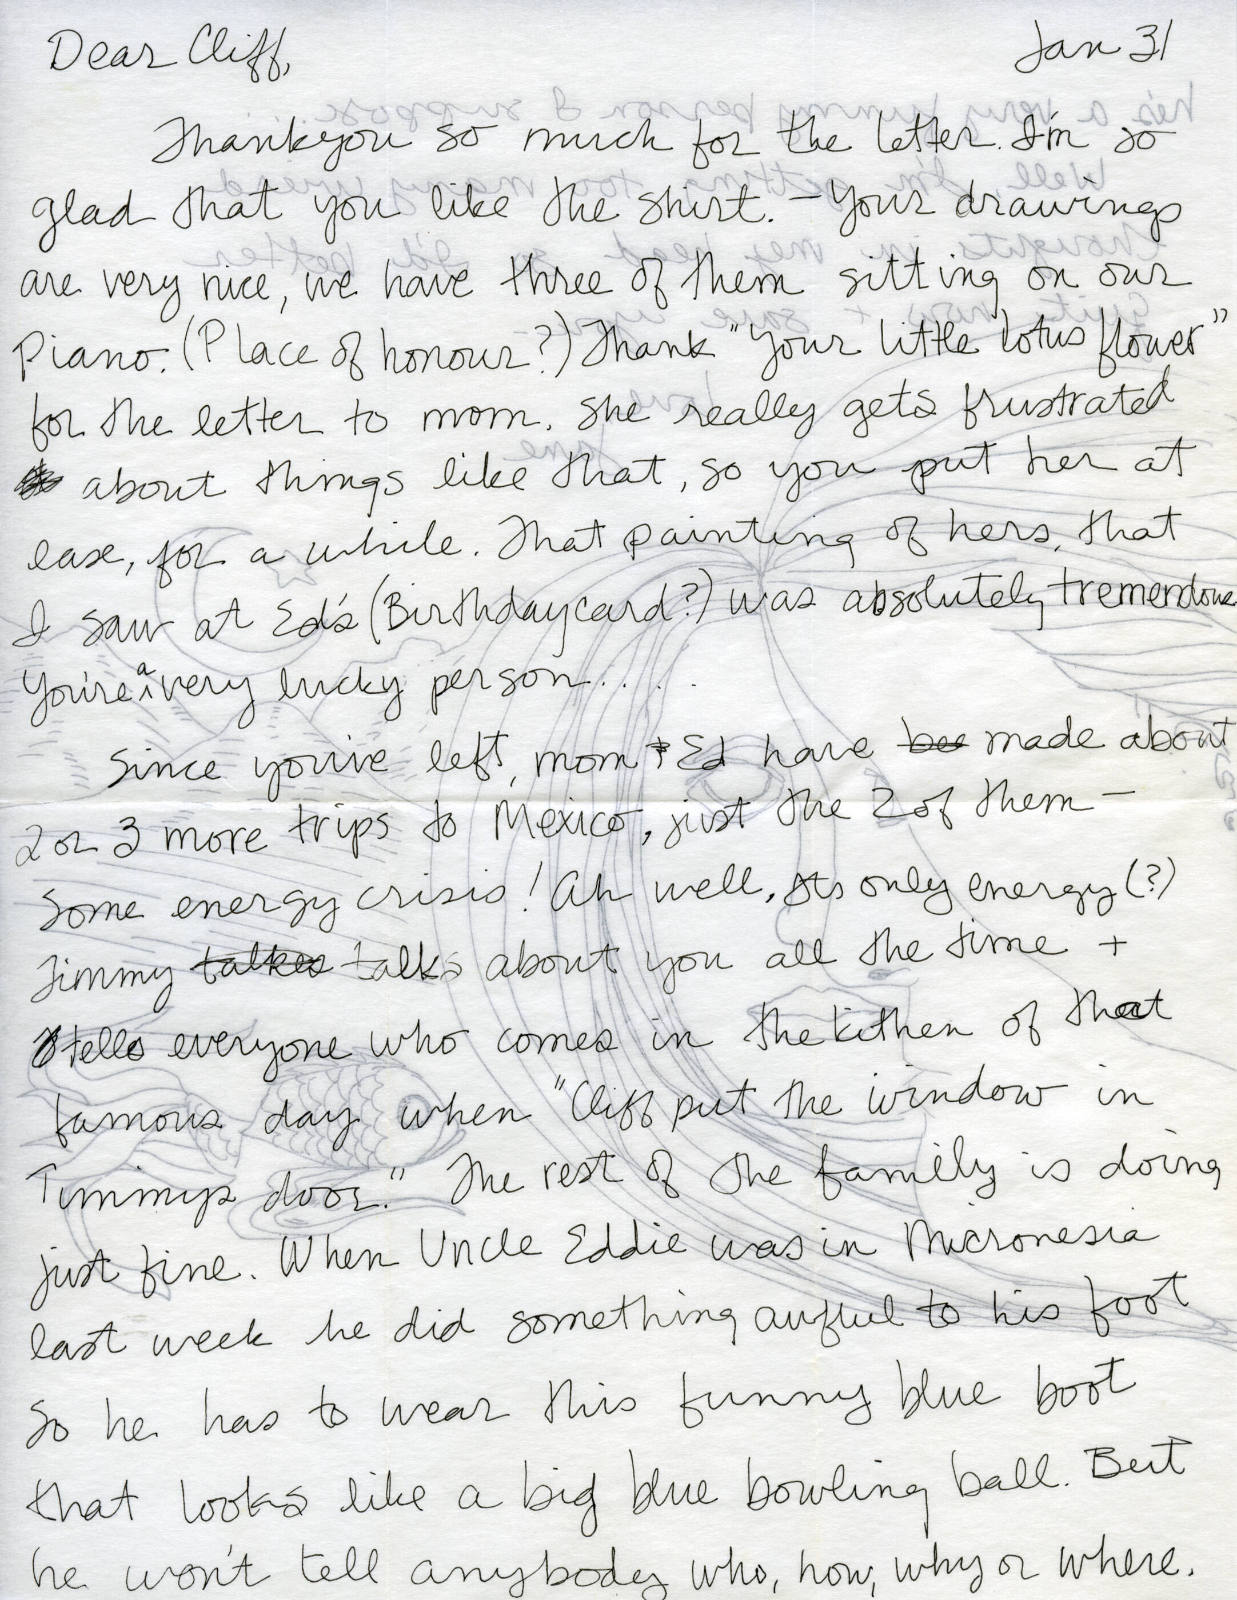 Dear Cliff, Jan 31
Thankyou so much for the letter. I'm so
glad that you like the shirt. - Your drawings
are very nice, we have three of them sitting on our
Piano. (Place of honour?) Thank "Your little lotus flower"
for the letter to mom. She really gets frustrated
about things like that, so you put her at
ease, for a while. That painting of hers, that
I saw at Ed's (Birthdaycard?) was absolutely tremendous
You're a very lucky person.....
Since you've left, mom + Ed have bee made about
2 or 3 more trips to Mexico, just the 2 of them -
Some energy crisis! Ah well, its only energy (?)
Jimmy talkes talks about you all the time +
tells everyone who comes in the kithen of that
famous day when "Cliff put the window in
Timmys door." The rest of the family is doing
just fine. When Uncle Eddie was in Micronesia
last week he did something awful to his foot
So he has to wear this funny blue boot
that looks like a big blue bowling ball. But
he won't tell anybody who, how, why or where.
he's a very funny person I suppose....
Well, I'm getting too many wierd
thoughts in my head so I'd better
quit now + save up.
Love
Jane